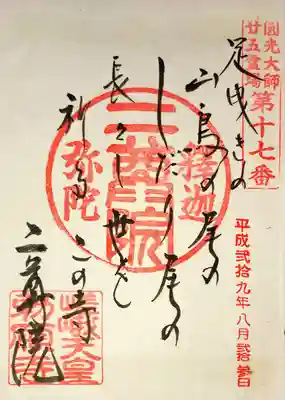 圓光大師
廿五霊場
第十七番
平成弐拾九年八月弐拾参日
足曳きの
山鳥の尾の
しだり尾の
長々し世を
祈る この寺
二尊院
釋迦
二尊院
弥陀
嵯峨天皇